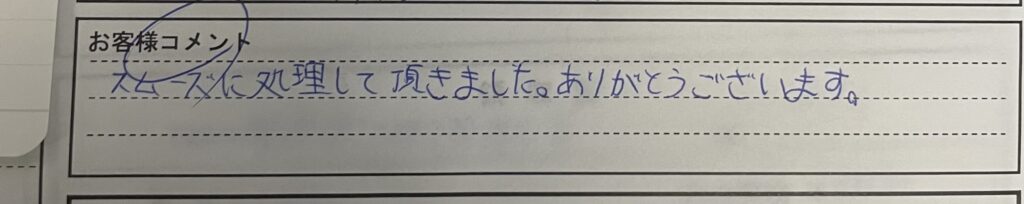 お客様コメント
スムーズに処理して頂きました。ありがとうございます。